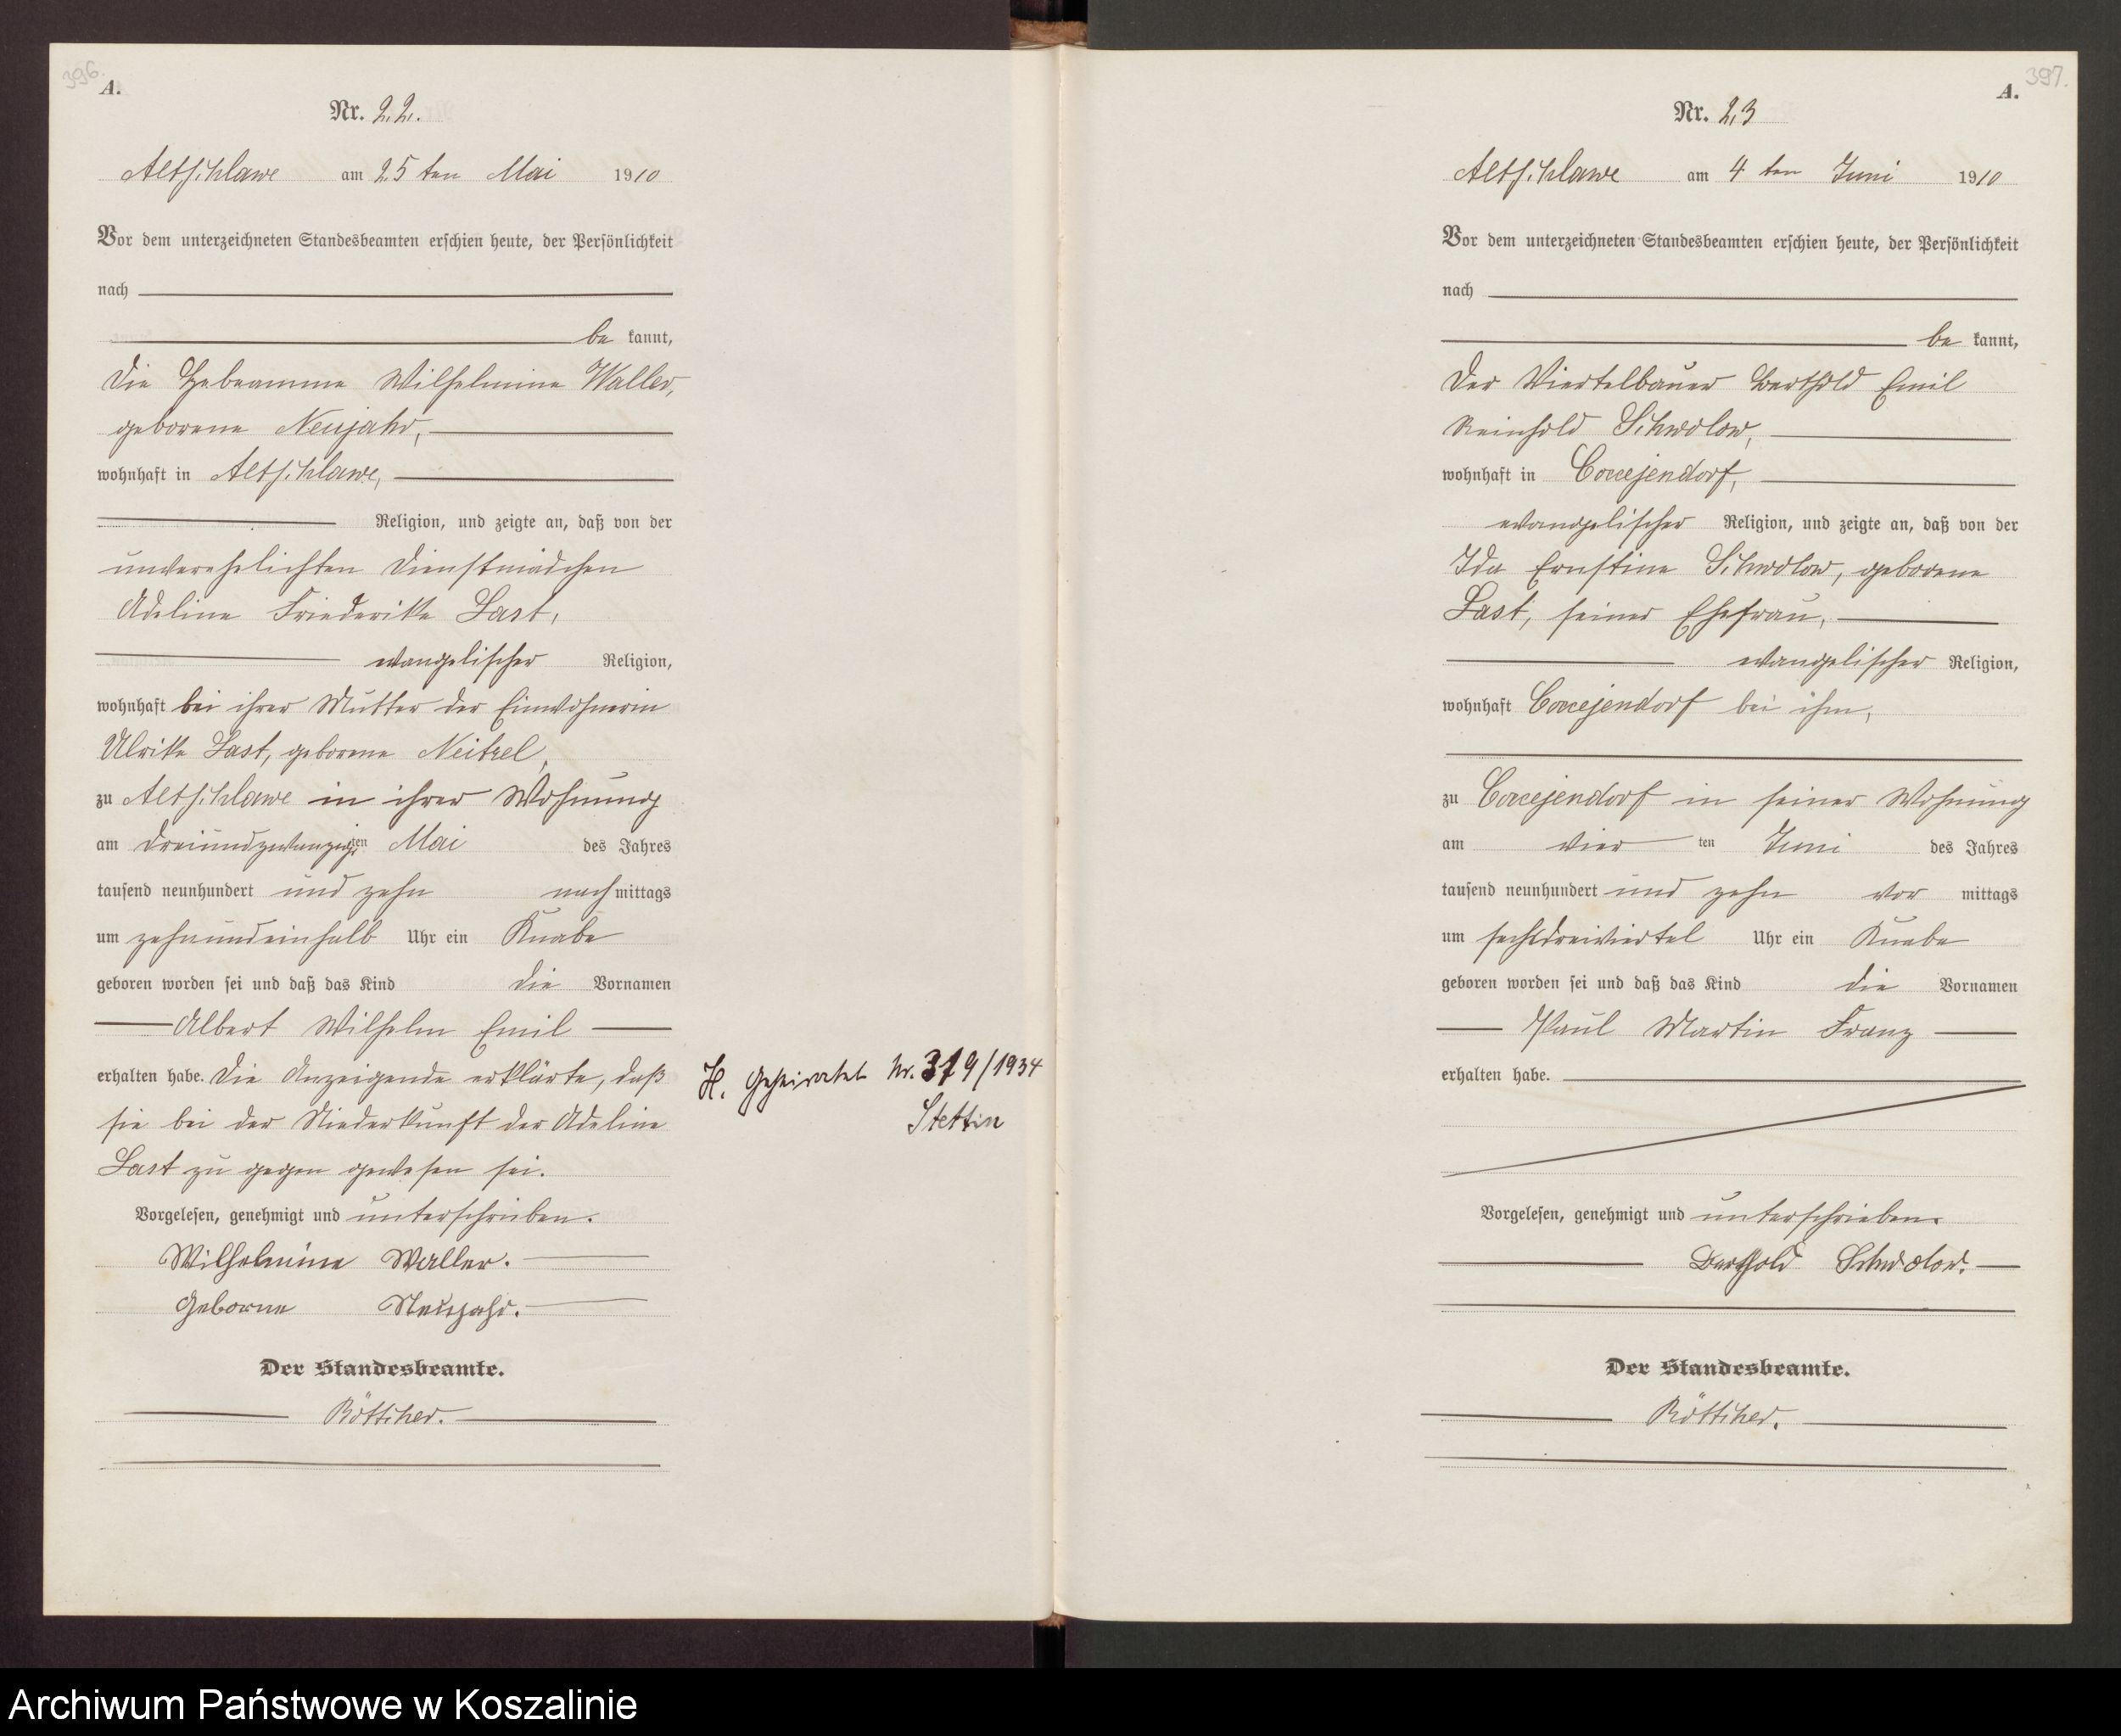 396.
A.
Nr. 22.
Altschlawe am 25 ten Mai 1910
Vor dem unterzeichneten Standesbeamten erschien heute, der Persönlichkeit
nach
be kannt,
die Hebeamme Wilhelmine Waller,
geborene Neujahr,
wohnhaft in Altschlawe,
Religion, und zeigte an, daß von der
unverehelichten Dienstmädchen
Adeline Friederike Last,
evangelischer Religion,
wohnhaft bei ihrer Mutter der Einwohnerin
Ulrike Last, geborene Neitzel,
zu Altschlawe in ihrer Wohnung
am dreiundzwanzigsten Mai des Jahres
tausend neunhundert und zehn nach mittags
um zehnundeinhalb Uhr ein Knabe
geboren worden sei und daß das Kind die Vornamen
Albert Wilhelm Emil
erhalten habe. Die Anzeigende erklärte, daß
sie bei der Niederkunft der Adeline
Last zu gegen gewesen sei.
Vorgelesen, genehmigt und unterschrieben.
Wilhelmine Waller.
Geborne Neujahr.
Der Standesbeamte.
Böttcher.
H. Geheiratet Nr. 319/1934
Stettin
397.
A.
Nr. 23
Altschlawe am 4 ten Juni 1910
Vor dem unterzeichneten Standesbeamten erschien heute, der Persönlichkeit
nach
be kannt,
der Viertelbauer Berthold Emil
Reinhold Schwolow,
wohnhaft in Coccejendorf,
evangelischer Religion, und zeigte an, daß von der
Ida Ernstine Schwolow, geborene
Last, seiner Ehefrau,
evangelischer Religion,
wohnhaft Coccejendorf bei ihm,
zu Coccejendorf in seiner Wohnung
am vier ten Juni des Jahres
tausend neunhundert und zehn vor mittags
um sechsdreiviertel Uhr ein Knabe
geboren worden sei und daß das Kind die Vornamen
Paul Martin Franz
erhalten habe.
Vorgelesen, genehmigt und unterschrieben.
Berthold Schwolow.
Der Standesbeamte.
Böttcher.
Archiwum Państwowe w Koszalinie